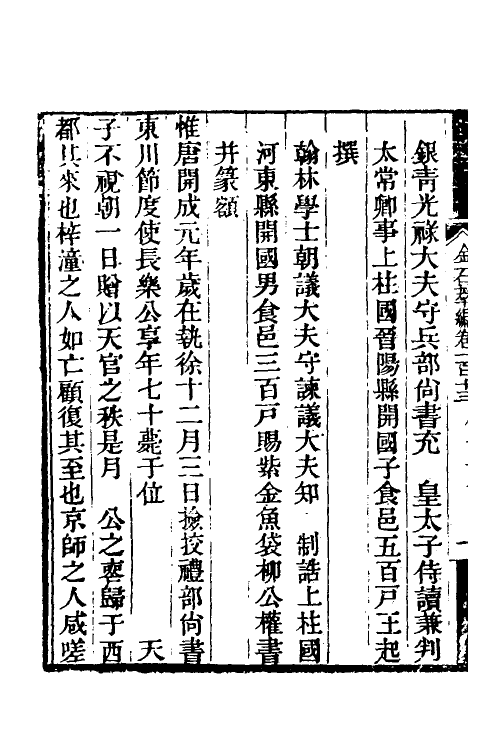 金石萃編卷一百十三
銀青光祿大夫守兵部尚書充　皇太子侍讀兼判
太常卿事上柱國晉陽縣開國子食邑五百戸王起
撰
翰林學士朝議大夫守諫議大夫知　制誥上柱國
河東縣開國男食邑三百戸賜紫金魚袋柳公權書
并篆額
惟唐開成元年歲在執徐十二月三日撿挍禮部尚書
東川節度使長樂公享年七十薨于位　天
子不視朝一日贈以天官之秩是月　公之喪歸于西
都其來也梓潼之人如亡顧復其至也京師之人咸嗟